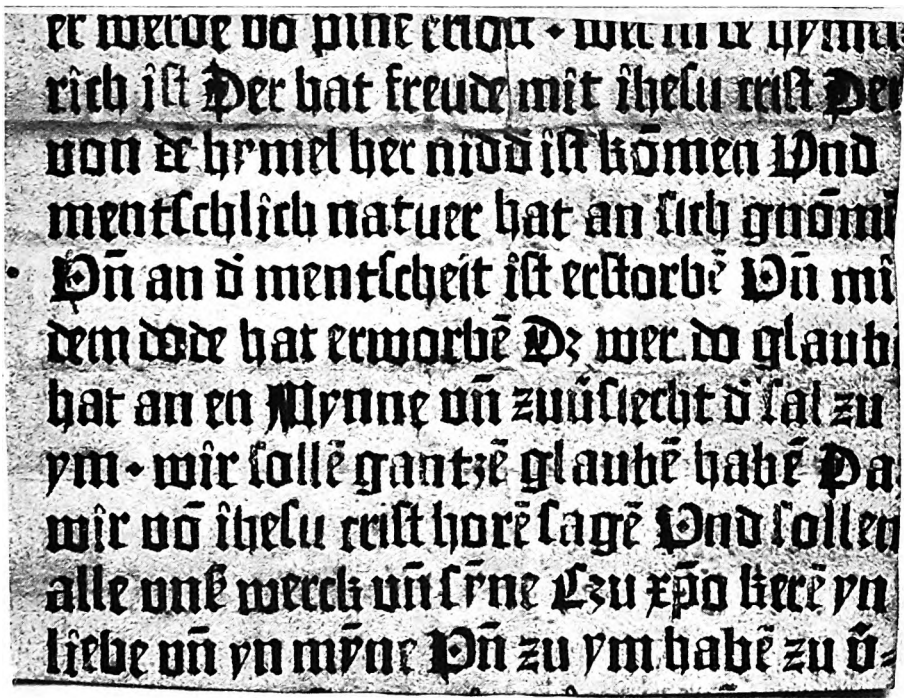 er werde vō pine erlost • wer in de hymel
rich ist Der hat freude mit ihesu crist Der
von dē hymel her nidd̄ ist kōmen Vnd
mentschlich natuer hat an sich gnōmē
Vn̄ an d̄ mentscheit ist erstorbē Vn̄ mit
dem dode hat erworbē Dz wer do glaubē
hat an en Mynne vn̄ zuv̄siecht d̄ sal zu
ym • wir sollē gantzē glaubē habē Da
wir vō ihesu crist horē sagē Vnd sollen
alle vnß werck vn̄ sȳne Czu xp̄o kerē yn
liebe vn̄ yn mȳne Vn̄ zu ym habē zu v̄⸗